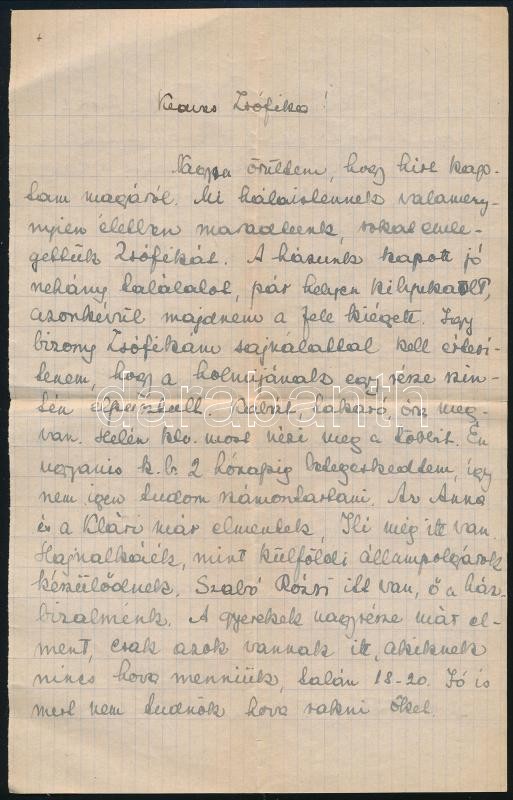 Kedves Zsófika!
Nagyon örültem, hogy hírt kap-
tam magáról. Mi hálaistennek valameny-
nyien életben maradtunk, sokat emle-
gettük Zsófikát. A házunk kapott jó
nehány találatot, pár helyen kilyukadt,
azonkívül majdnem a fele kiégett. Igy
bizony Zsófikám sajnálattal kell értesí-
tenem, hogy a holmijának egy része szin-
tén elpusztult. Kabát, takaró, meg-
van. Helén most nézi meg a többit. Én
ugyanis k.b. 2 hónapig betegeskedtem, így
nem igen tudom számontartani. Az Anna
és a Klári már elmentek, Ili még itt van.
Hajnalkáék, mint külföldi állampolgárok
készülődnek. Szabó Rózsi itt van, ő a ház-
bizalmink. A gyerekek nagyrésze már el-
ment, csak azok vannak itt, akiknek
nincs hova menniük, talán 18-20. Jó is
mert nem tudnók hova rakni őket.
darabanth